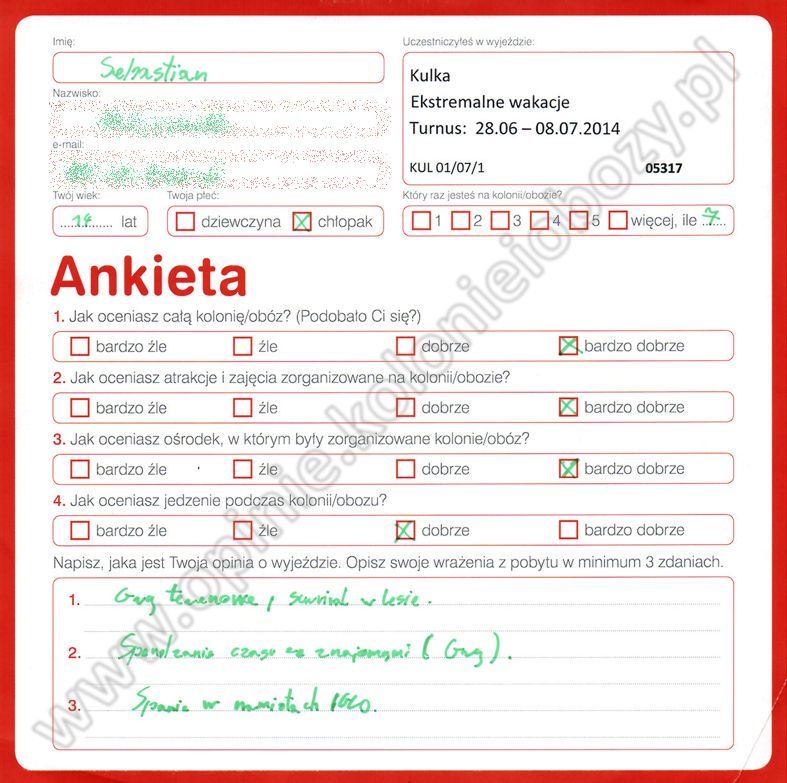 Imię:
Sebastian
Uczestniczyłeś w wyjeździe:
Kulka
Ekstremalne wakacje
Turnus: 28.06 – 08.07.2014
KUL 01/07/1 05317
Nazwisko:
e-mail:
Twój wiek:
14 lat
Twoja płeć:
dziewczyna chłopak
Który raz jesteś na kolonii/obozie?
1 2 3 4 5 więcej, ile 7
Ankieta
1. Jak oceniasz całą kolonię/obóz? (Podobało Ci się?)
bardzo źle źle dobrze bardzo dobrze
2. Jak oceniasz atrakcje i zajęcia zorganizowane na kolonii/obozie?
bardzo źle źle dobrze bardzo dobrze
3. Jak oceniasz ośrodek, w którym były zorganizowane kolonie/obóz?
bardzo źle źle dobrze bardzo dobrze
4. Jak oceniasz jedzenie podczas kolonii/obozu?
bardzo źle źle dobrze bardzo dobrze
Napisz, jaka jest Twoja opinia o wyjeździe. Opisz swoje wrażenia z pobytu w minimum 3 zdaniach.
1. Gry terenowe, survival w lesie.
2. Spendzanie czasu ze znajomymi (Gry).
3. Spanie w namiotach IGLO.
www.opinie.kolonieiobozy.pl